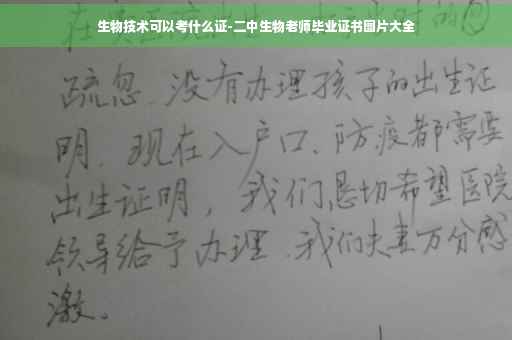 生物技术可以考什么证-二中生物老师毕业证书图片大全
疏忽、没有办理孩子的出生证
明、现在入户口、防疫都需要
出生证明，我们恳切希望医院
领导给予办理、我们夫妻万分感
激。